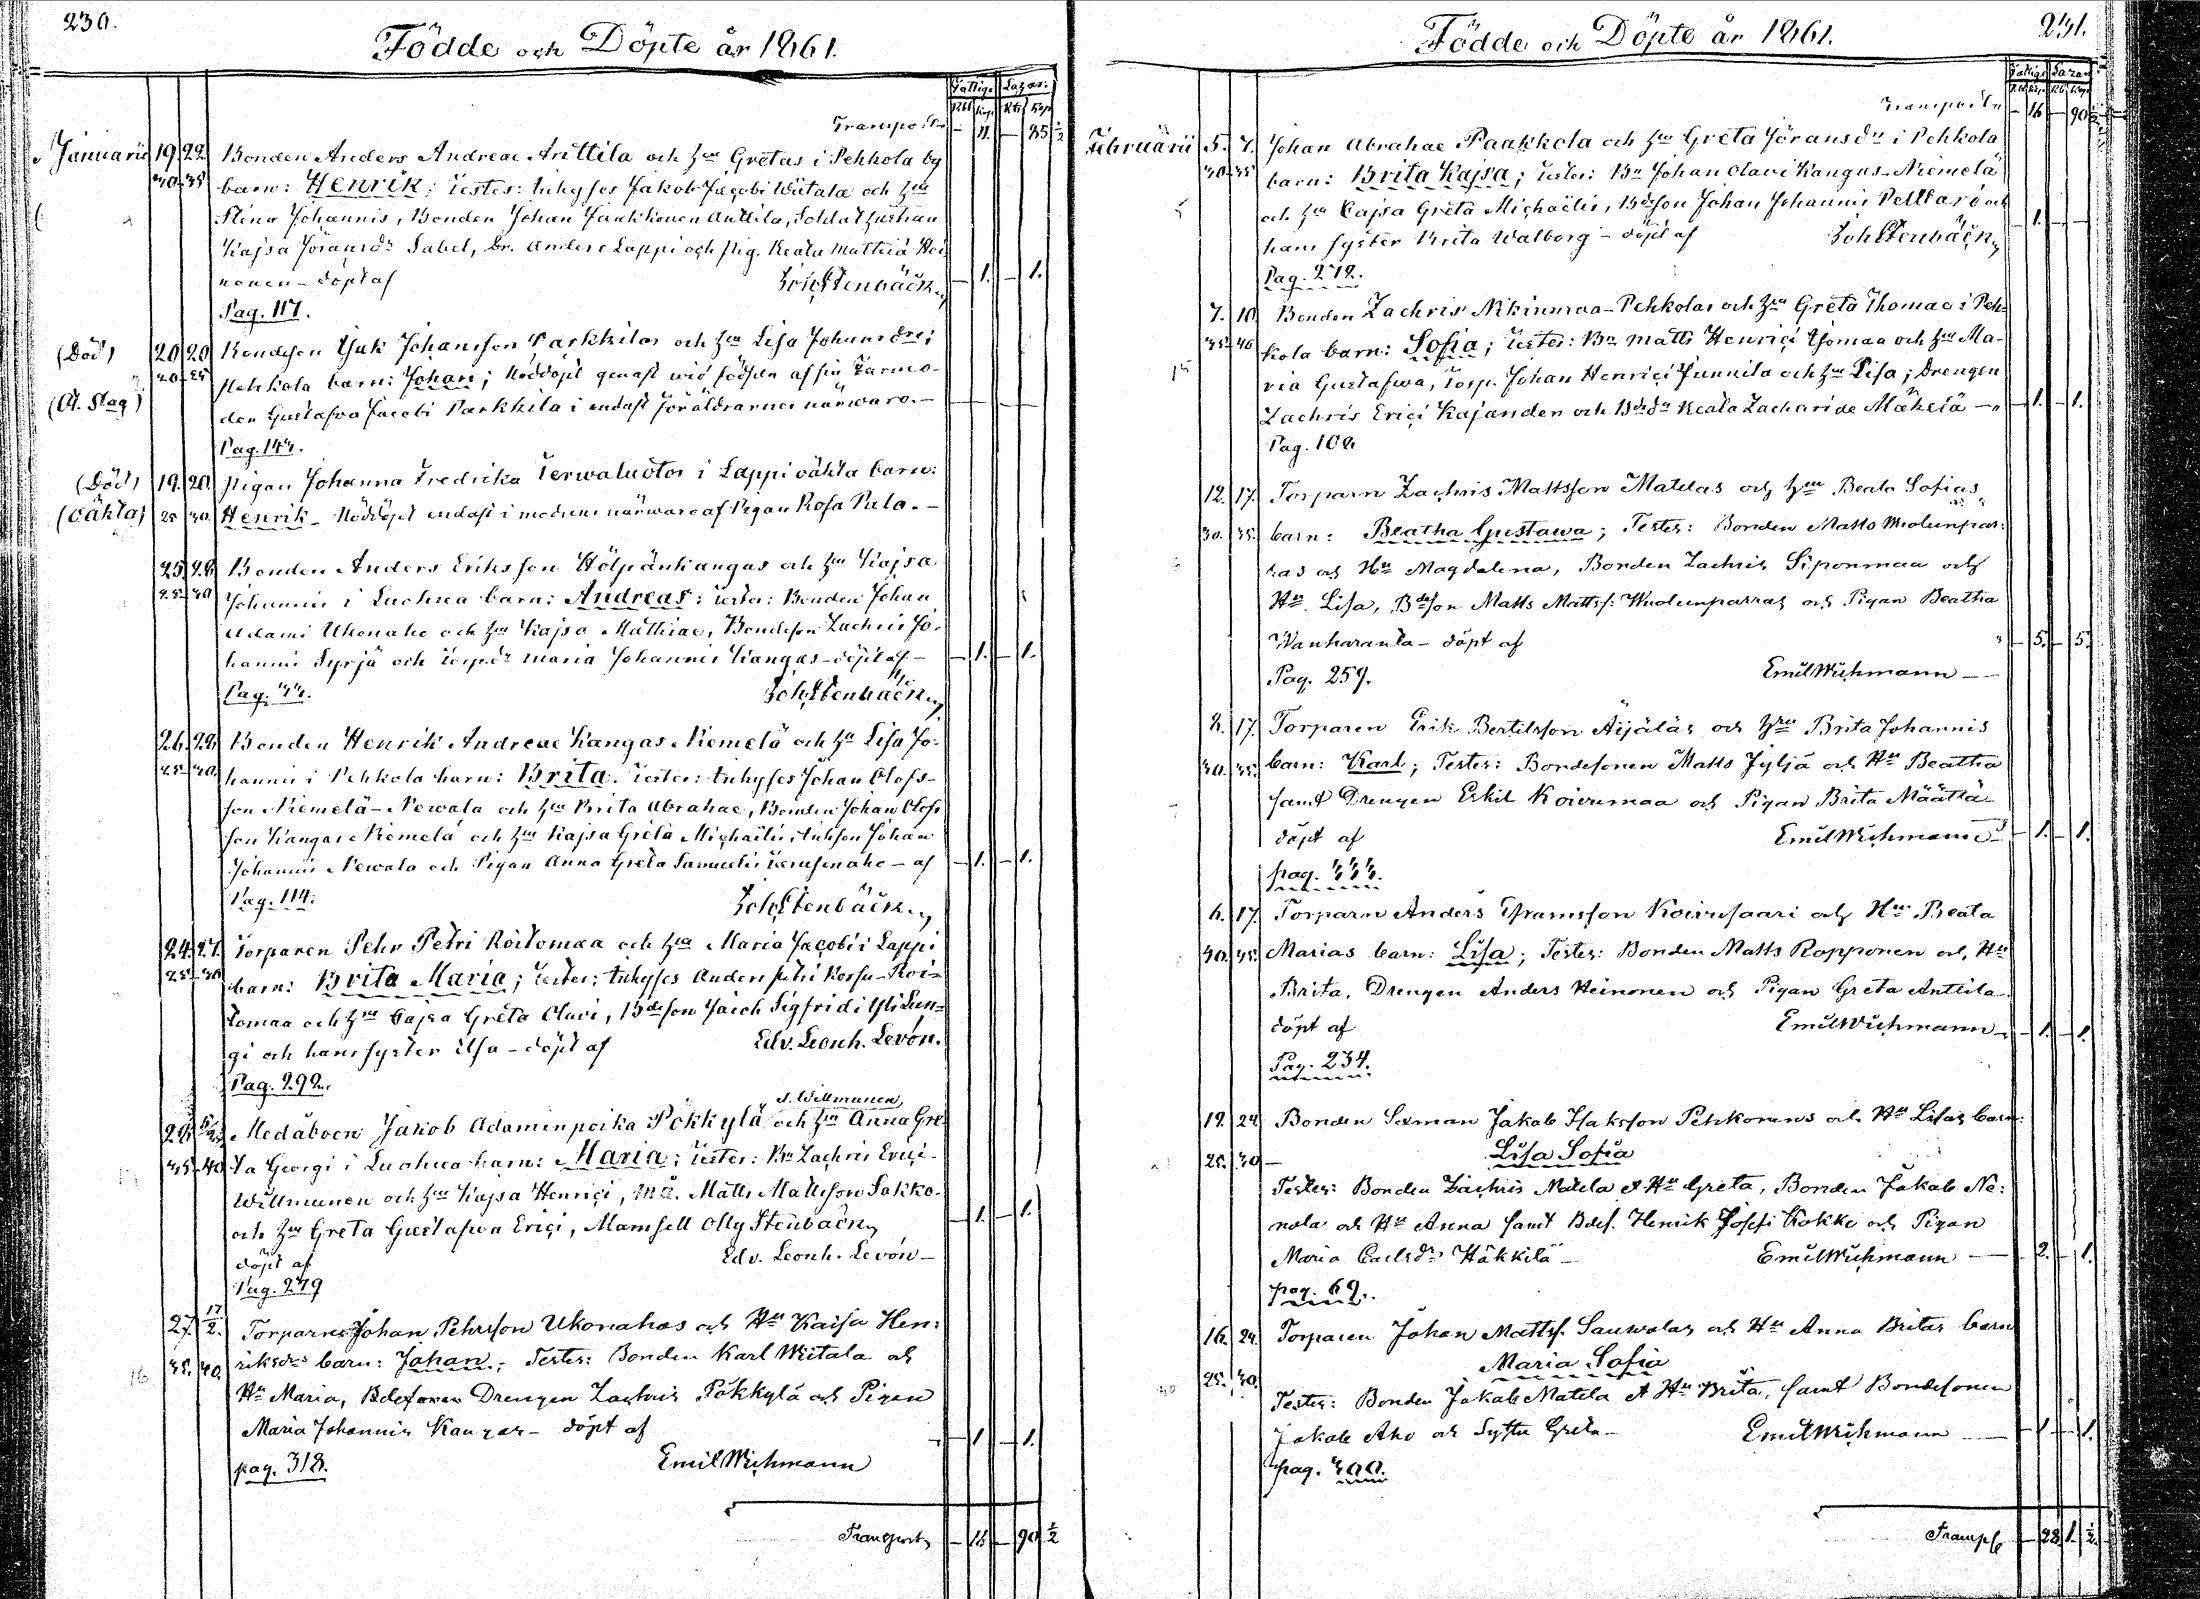 230.
Födde och Döpte år 1861.
Fattige Lazar:
Rbl Kop Rbl Kop
Transport - 11. - 85 ½
Januarii 19. 22 Bonden Anders Andreae Anttila och hu Gretas i Pehkola by
30 35 barn: Henrik; Testes: Inhyses Jakob Jacobi Wiitala och hu
Stina Johannis, Bonden Johan Jaakkonen Anttila, Soldat hustrun
Kajsa Jöransdr Sabel, Dr. Anders Lappi och Pig. Beata Matthiæ Hei
nonen - döpt af Joh Stenbäck - 1. - 1.
Pag. 117.
(Död) 20 20 Bondeson Isak Johansson Parkkilas och hu Lisa Johansdrs i
20 25 Pehkola barn: Johan; Nöddöpt genast wid födseln af sin Farmo-
(Ot. Slag) der Gustafwa Jacobi Parkkila i endast föräldrarnes närwaro. -
Pag. 144.
(Död) 19. 20 Pigan Johanna Fredrika Terwaluotos i Lappi oäkta barn:
(oäkta) 25 30 Henrik - Nöddöpt endast i modrens närwaro af Pigan Rosa Pulo. -
25. 28 Bonden Anders Eriksson Hölpänkangas och hu Kajsa
25 30 Johannis i Luohua barn: Andreas; Testes: Bonden Johan
Adami Ukonaho och hu Kajsa Mathiae, Bondeson Zachris Jo-
hannis Syrjä och Torpdr Maria Johannis Kangas - döpt af - - 1. - 1.
Pag. 44. Joh Stenbäck
26. 28 Bonden Henrik Andreae Kangas Niemelä och hu Lisa Jo-
25 30 hannis i Pehkola barn: Brita. Testes: Inhyses Johan Olofs-
son Niemelä-Newala och hu Brita Abrahae, Bonden Johan Olofs
son Kangas Niemelä och hu Kajsa Greta Michaelis, Inhson Johan
Johannis Newala och Pigan Anna Greta Samuelis - af - 1. - 1.
Pag. 114. Joh Stenbäck
24. 27. Torparen Pehr Petri Roitomaa och hu Maria Jacobi i Lappi
25 30 barn: Brita Maria; Testes: Inhyses Anders Petri Korsu-Roi-
tomaa och hu Cajsa Greta Olavi, Bdeson Sigfridi Yli Lun-
gi och hans syster Elsa - döpt af Edv. Leonh. Levón.
Pag. 292.
s. Willmunen
28 5/2 Medåboen Jakob Adaminpoika Pökkylä och hu Anna Gre
35 40 ta Georgi i Luohua barn: Maria; Testes: Bn Zachris Erici
Willmunen och hu Kajsa Henrici, Må. Matts Mattsson Sakko
och hu Greta Gustafwa Erici, Mamsell Olly Stenbäck - 1. - 1.
döpt af Edv. Leonh. Levón -
Pag. 279
27. 17/2. Torparne Johan Pehrsson Ukonahos och Hu Kaisa Hen:
35. 40. riksdrs barn: Johan; Testes: Bonden Karl Wiitala och
Hu Maria, Drengen Zachris Pökkylä och Pigan
Maria Johannis Kangas - döpt af - 1. - 1.
pag. 318. Emil Wichmann
Transport - 16 - 90 ½
231.
Födde och Döpte år 1861.
Fattige Lazar
Transport - 16 - 90 ½
Februarii 5. 7. Johan Abrahae Paakkola och hu Greta Jöransdr i Pehkola
30 35 barn: Brita Kajsa; Testes: Bn Johan Olavi Kangas-Niemelä
och hu Cajsa Greta Michaelis, Bdeson Johan Johannis Pelttari och
hans syster Brita Walborg - döpt af Joh Stenbäck - 1. - -
Pag. 272.
7. 10. Bonden Zachris Nikinmaa-Pehkolas och hu Greta Thomae i Peh-
35 40 kola barn: Sofia; Testes: Bn Matts Henrici Isomaa och hu Ma-
ria Gustafwa, Torp. Johan Henrici Junnila och hu Lisa; Drengen
Zachris Erici Kajanden och Bdedr Beata Zachariae Mäkelä - - 1. - 1.
Pag. 102.
12. 17. Torparn Zachris Mattsson Matelas och hu Beata Sofias
30. 35. barn: Beatha Gustawa; Testes: Bonden Matts Wuolunpar:
ras och Hu Magdalena, Bonden Zachris Siponmaa och
Hu Lisa, Bdeson Matts Mattss: Wuolunparras och Pigan Beatha
Wanharanta - döpt af - 5. - 5.
Pag. 259. Emil Wichmann -
8. 17. Torparen Erik Bertilsson Äijäläs och hu Brita Johannis
30. 35. barn: Karl; Testes: Bondesonen Matts Jyljä och Hu Beatha
samt Drengen Eskil Koivumaa och Pigan Brita Määttä
döpt af Emil Wichmann - 1. - 1.
pag. 333.
6. 17. Torparn Anders Abramsson Koivusaari och Hu Beata
30. 35. Marias barn: Lisa; Testes: Bonden Matts Ropponen och Hu
Brita, Drengen Anders Heinonen och Pigan Greta Anttila
döpt af Emil Wichmann - 1. - 1.
Pag. 234.
19. 24. Bonden Sexman Jakob Isaksson Pehkonens och Hu Lisas barn:
25. 30 - Lisa Sofia
Testes: Bonden Zachris Matela & Hu Greta, Bonden Jakob Ne:
nola och Hu Anna samt Bdes. Henrik Josefi Kokko och Pigan
Maria Carlsdr Häkkilä - Emil Wichmann - - 2. - 1.
pag. 69.
16. 24. Torparen Johan Mattss. Sauwolas och Hu Anna Britas barn
25. 30. Maria Sofia
Testes: Bonden Jakob Matela & Hu Brita, samt Bondesonen
Jakob Aho och Syster Greta - Emil Wichmann - 1. - 1.
pag. 300.
Transp. - 28 1. ½